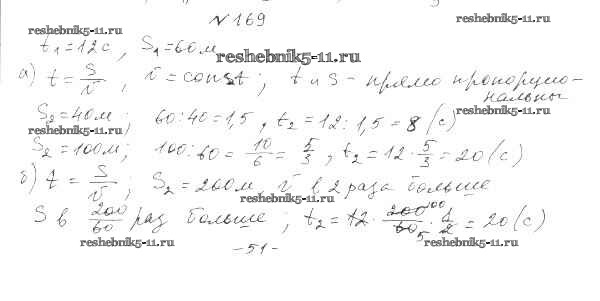 №169
reshebnik5-11.ru
t₁=12c, S₁=60м
reshebnik5-11.ru
а) t = S/v, v = const; t и S - прямо пропорцио-
нальны
reshebnik5-11.ru
S₂=40м; 60:40=1,5, t₂=12:1,5=8 (с)
reshebnik5-11.ru
S₂=100м; 100:60=10/6=5/3, t₂=12·5/3=20(с)
б) t = S/v; S₂=200м, v в 2 раза больше
reshebnik5-11.ru
S в 200/60 раз больше; t₂=12·200/60·1/2=20(с)
reshebnik5-11.ru
reshebnik5-11.ru
-51-